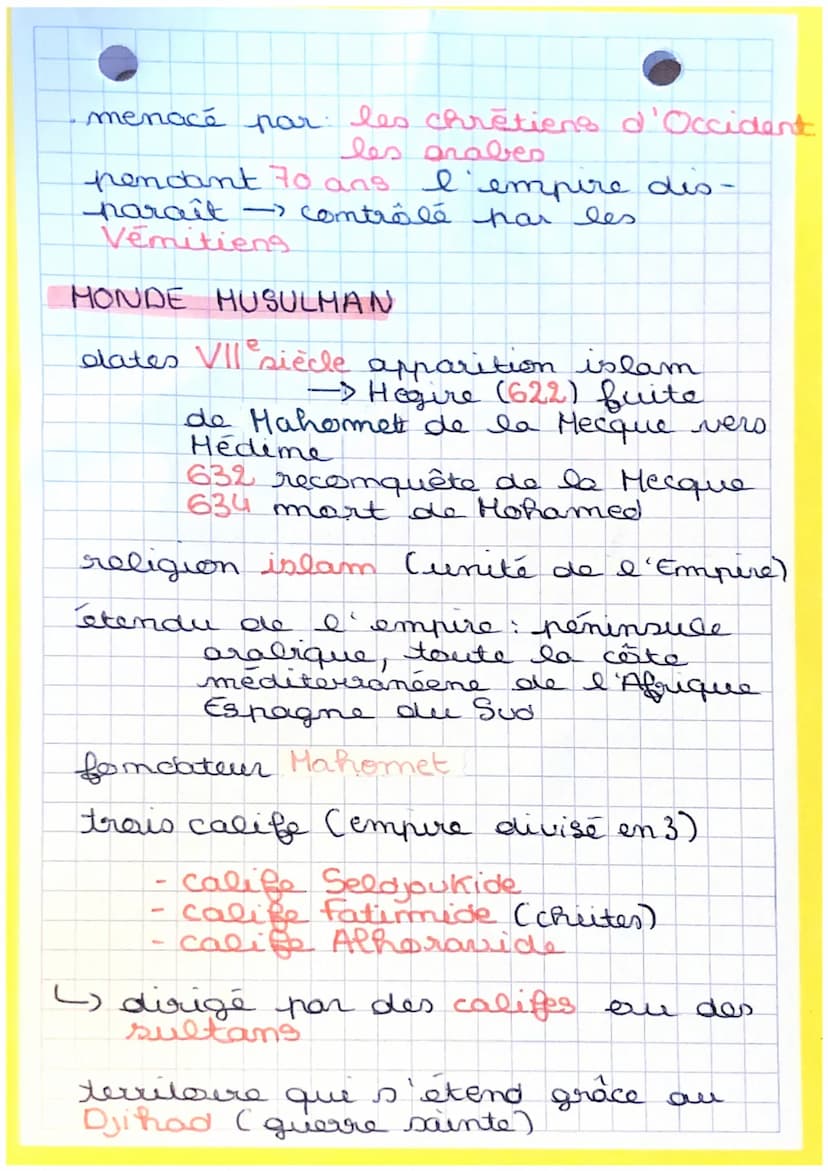 . menacé par : les chrétiens d'Occident
les arabes
pendant 70 ans l'empire dis-
paraît → contrôlé par les
Vénitiens
MONDE MUSULMAN
dates VIIe siècle apparition islam
→ Hégire (622) fuite
de Mahomet de la Mecque vers
Médine
632 reconquête de la Mecque
634 mort de Mohamed
religion islam (unité de l'Empire)
étendu de l'empire : péninsule
arabique, toute la côte
méditerranéene de l'Afrique
Espagne du Sud
fondateur Mahomet
trois calife (empire divisé en 3)
- calife Seldjoukide
- calife Fatimide (chiites)
- calife Almoravide
↳ dirigé par des califes ou des
sultans
territoire qui s'étend grâce au
Djihad (guerre sainte)